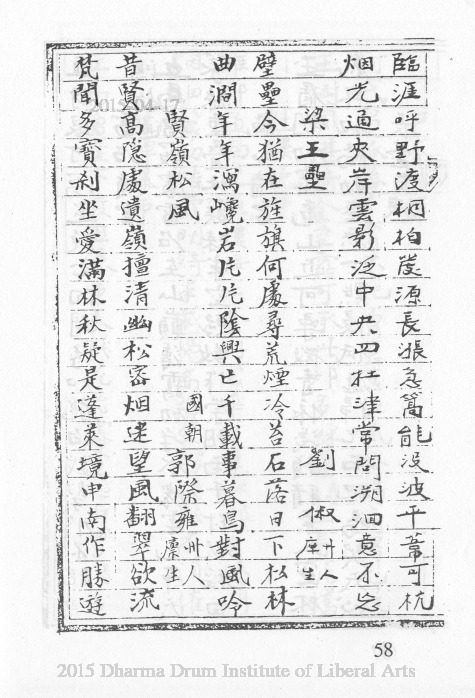 臨涯呼野渡桐柏發源長漲急篙能没波平葦可杭
烟光通夾岸雲影泛中央四杜津常問溯洄意不忘
梁王壘 劉俶 州人庠生
壁壘今猶在旌旗何處尋荒煙冷苔石落日下松林
曲澗年年瀉巉岩片片陰興亡千載事暮鳥對風吟
賢嶺松風 國朝郭際雍 州人廪生
昔賢高隐處遺嶺擅清幽松密烟迷望風翻翠欲流
梵聞多寶刹坐愛滿林秋疑是蓬萊境申南作勝遊
2015/04/17
58
2015 Dharma Drum Institute of Liberal Arts